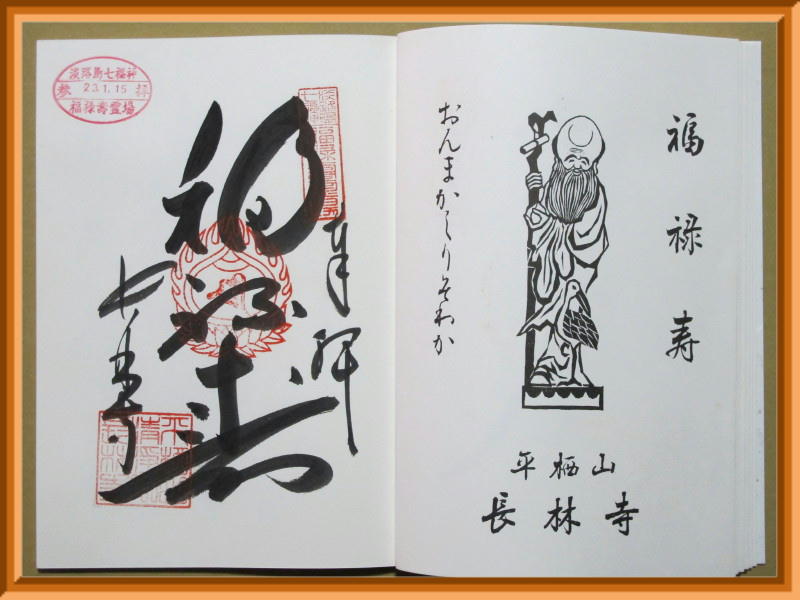 福禄寿
おんまかしりそわか
平栖山
長林寺
淡路島七福神
参拝
23.1.15
福禄寿霊場
奉拝
福禄寿
長林寺